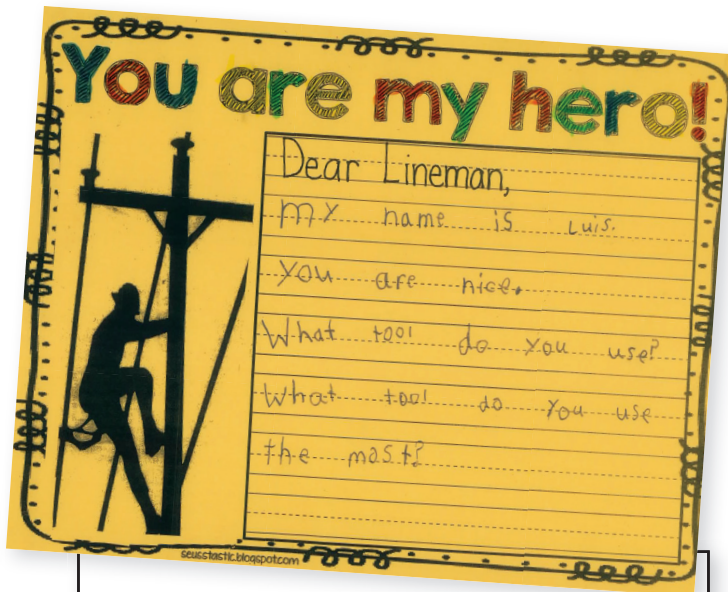 You are my hero!
Dear Lineman,
My name is Luis.
You are nice.
What tool do you use?
What tool do you use
the most?
seusstastic.blogspot.com